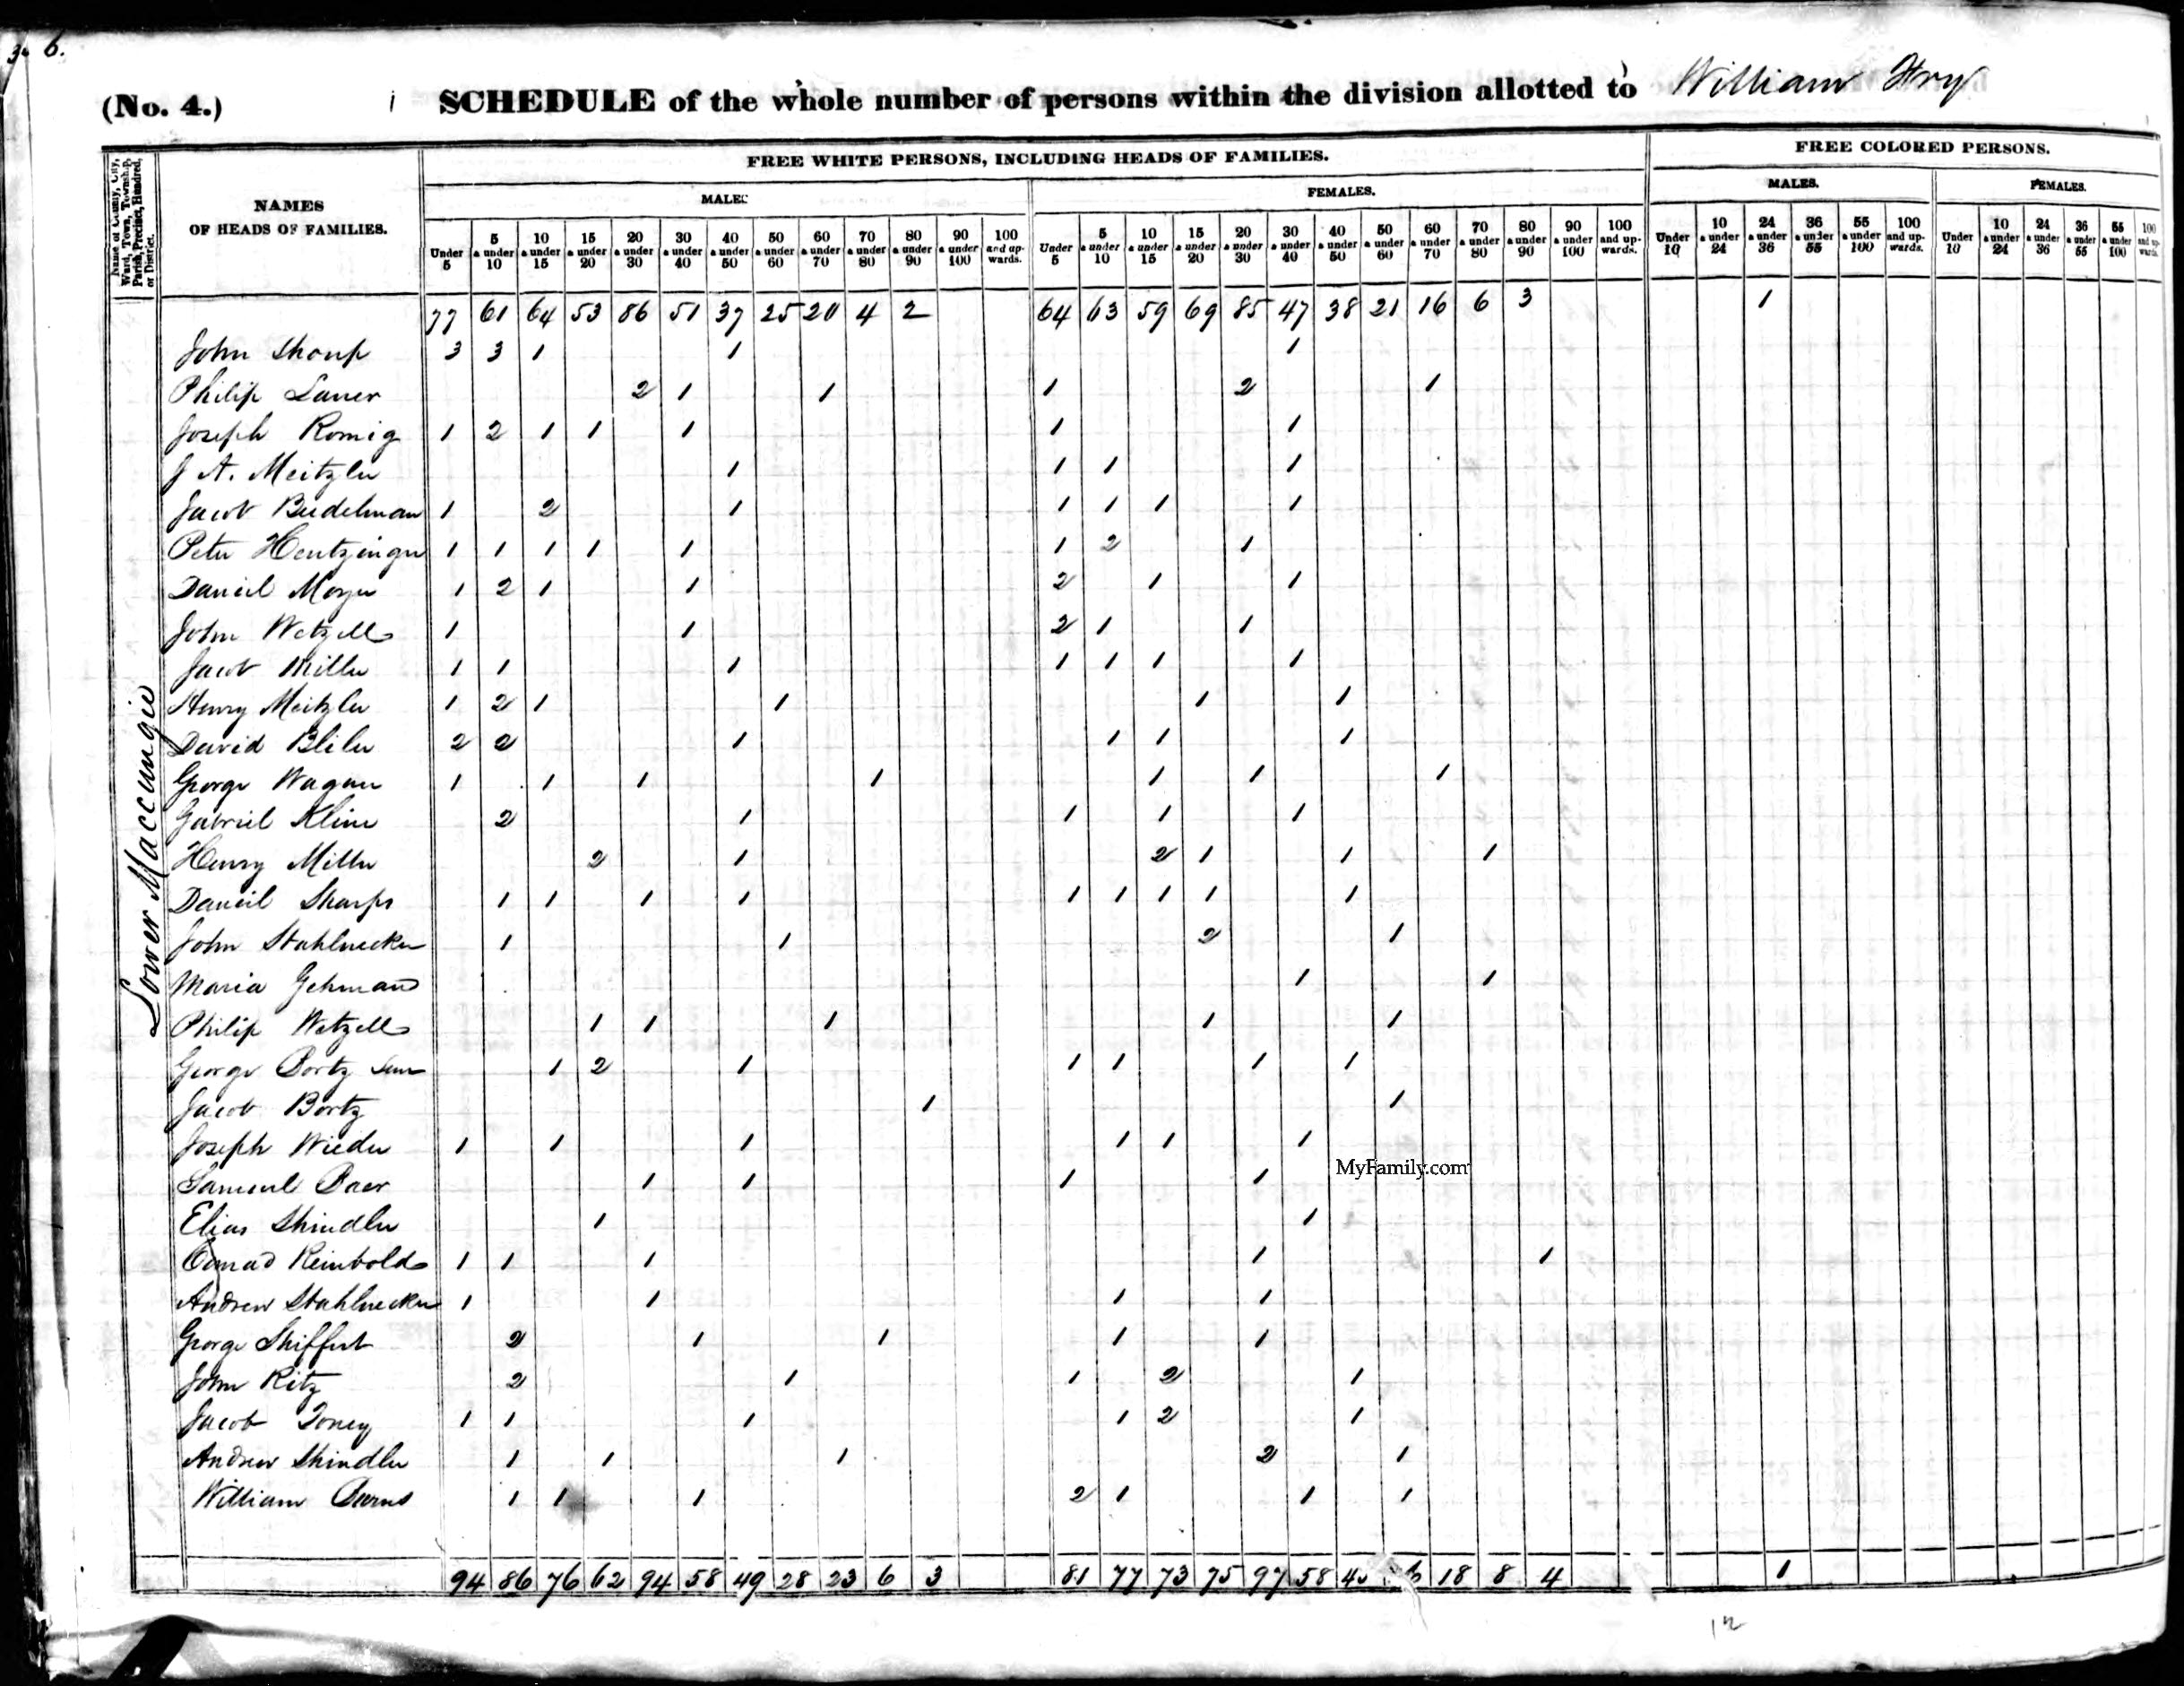 3 6.
(No. 4.) SCHEDULE of the whole number of persons within the division allotted to William Fry
Name of County, City, Ward, Town, Township, Parish, Precinct, Hundred, or District.
NAMES OF HEADS OF FAMILIES.
FREE WHITE PERSONS, INCLUDING HEADS OF FAMILIES.
FREE COLORED PERSONS.
MALES FEMALES. MALES. FEMALES.
Under 5 5 & under 10 10 & under 15 15 & under 20 20 & under 30 30 & under 40 40 & under 50 50 & under 60 60 & under 70 70 & under 80 80 & under 90 90 & under 100 100 and upwards. Under 5 5 & under 10 10 & under 15 15 & under 20 20 & under 30 30 & under 40 40 & under 50 50 & under 60 60 & under 70 70 & under 80 80 & under 90 90 & under 100 100 and upwards. Under 10 10 & under 24 24 & under 36 36 & under 55 55 & under 100 100 and upwards. Under 10 10 & under 24 24 & under 36 36 & under 55 55 & under 100 100 and upwards.
77 61 64 53 86 51 37 25 20 4 2 64 63 59 69 85 47 38 21 16 6 3 1
Lower Maccungie
John Shoup 3 3 1 1 1
Philip Laner 2 1 1 1 2 1
Joseph Romig 1 2 1 1 1 1 1
J A. Meitzler 1 1 1 1
Jacob Biedelman 1 2 1 1 1 1 1
Peter Hentzinger 1 1 1 1 1 1 2 1
Daniel Moyer 1 2 1 1 2 1 1
John Wetzell 1 1 2 1 1
Jacob Miller 1 1 1 1 1 1 1
Henry Meitzler 1 2 1 1 1 1
David Bliler 2 2 1 1 1 1
George Wagner 1 1 1 1 1 1 1
Gabriel Kline 2 1 1 1 1
Henry Miller 2 1 2 1 1 1
Daniel Sharps 1 1 1 1 1 1 1 1 1
John Stahlnecker 1 1 2 1
Maria Gehman 1 1
Philip Wetzell 1 1 1 1 1
George Bortz Sen 1 2 1 1 1 1 1
Jacob Bortz 1 1
Joseph Wieder 1 1 1 1 1 1
Samuel Baer 1 1 1 1
Elias Shindler 1 1
Conrad Reinbold 1 1 1 1 1
Andrew Stahlnecker 1 1 1 1
George Shiffert 2 1 1 1 1
John Ritz 2 1 1 2 1
Jacob Toney 1 1 1 1 2 1
Andrew Shindler 1 1 1 2 1
William Barns 1 1 1 2 1 1 1
94 86 76 62 94 58 49 28 23 6 3 81 77 73 75 97 58 18 8 4 1
MyFamily.com